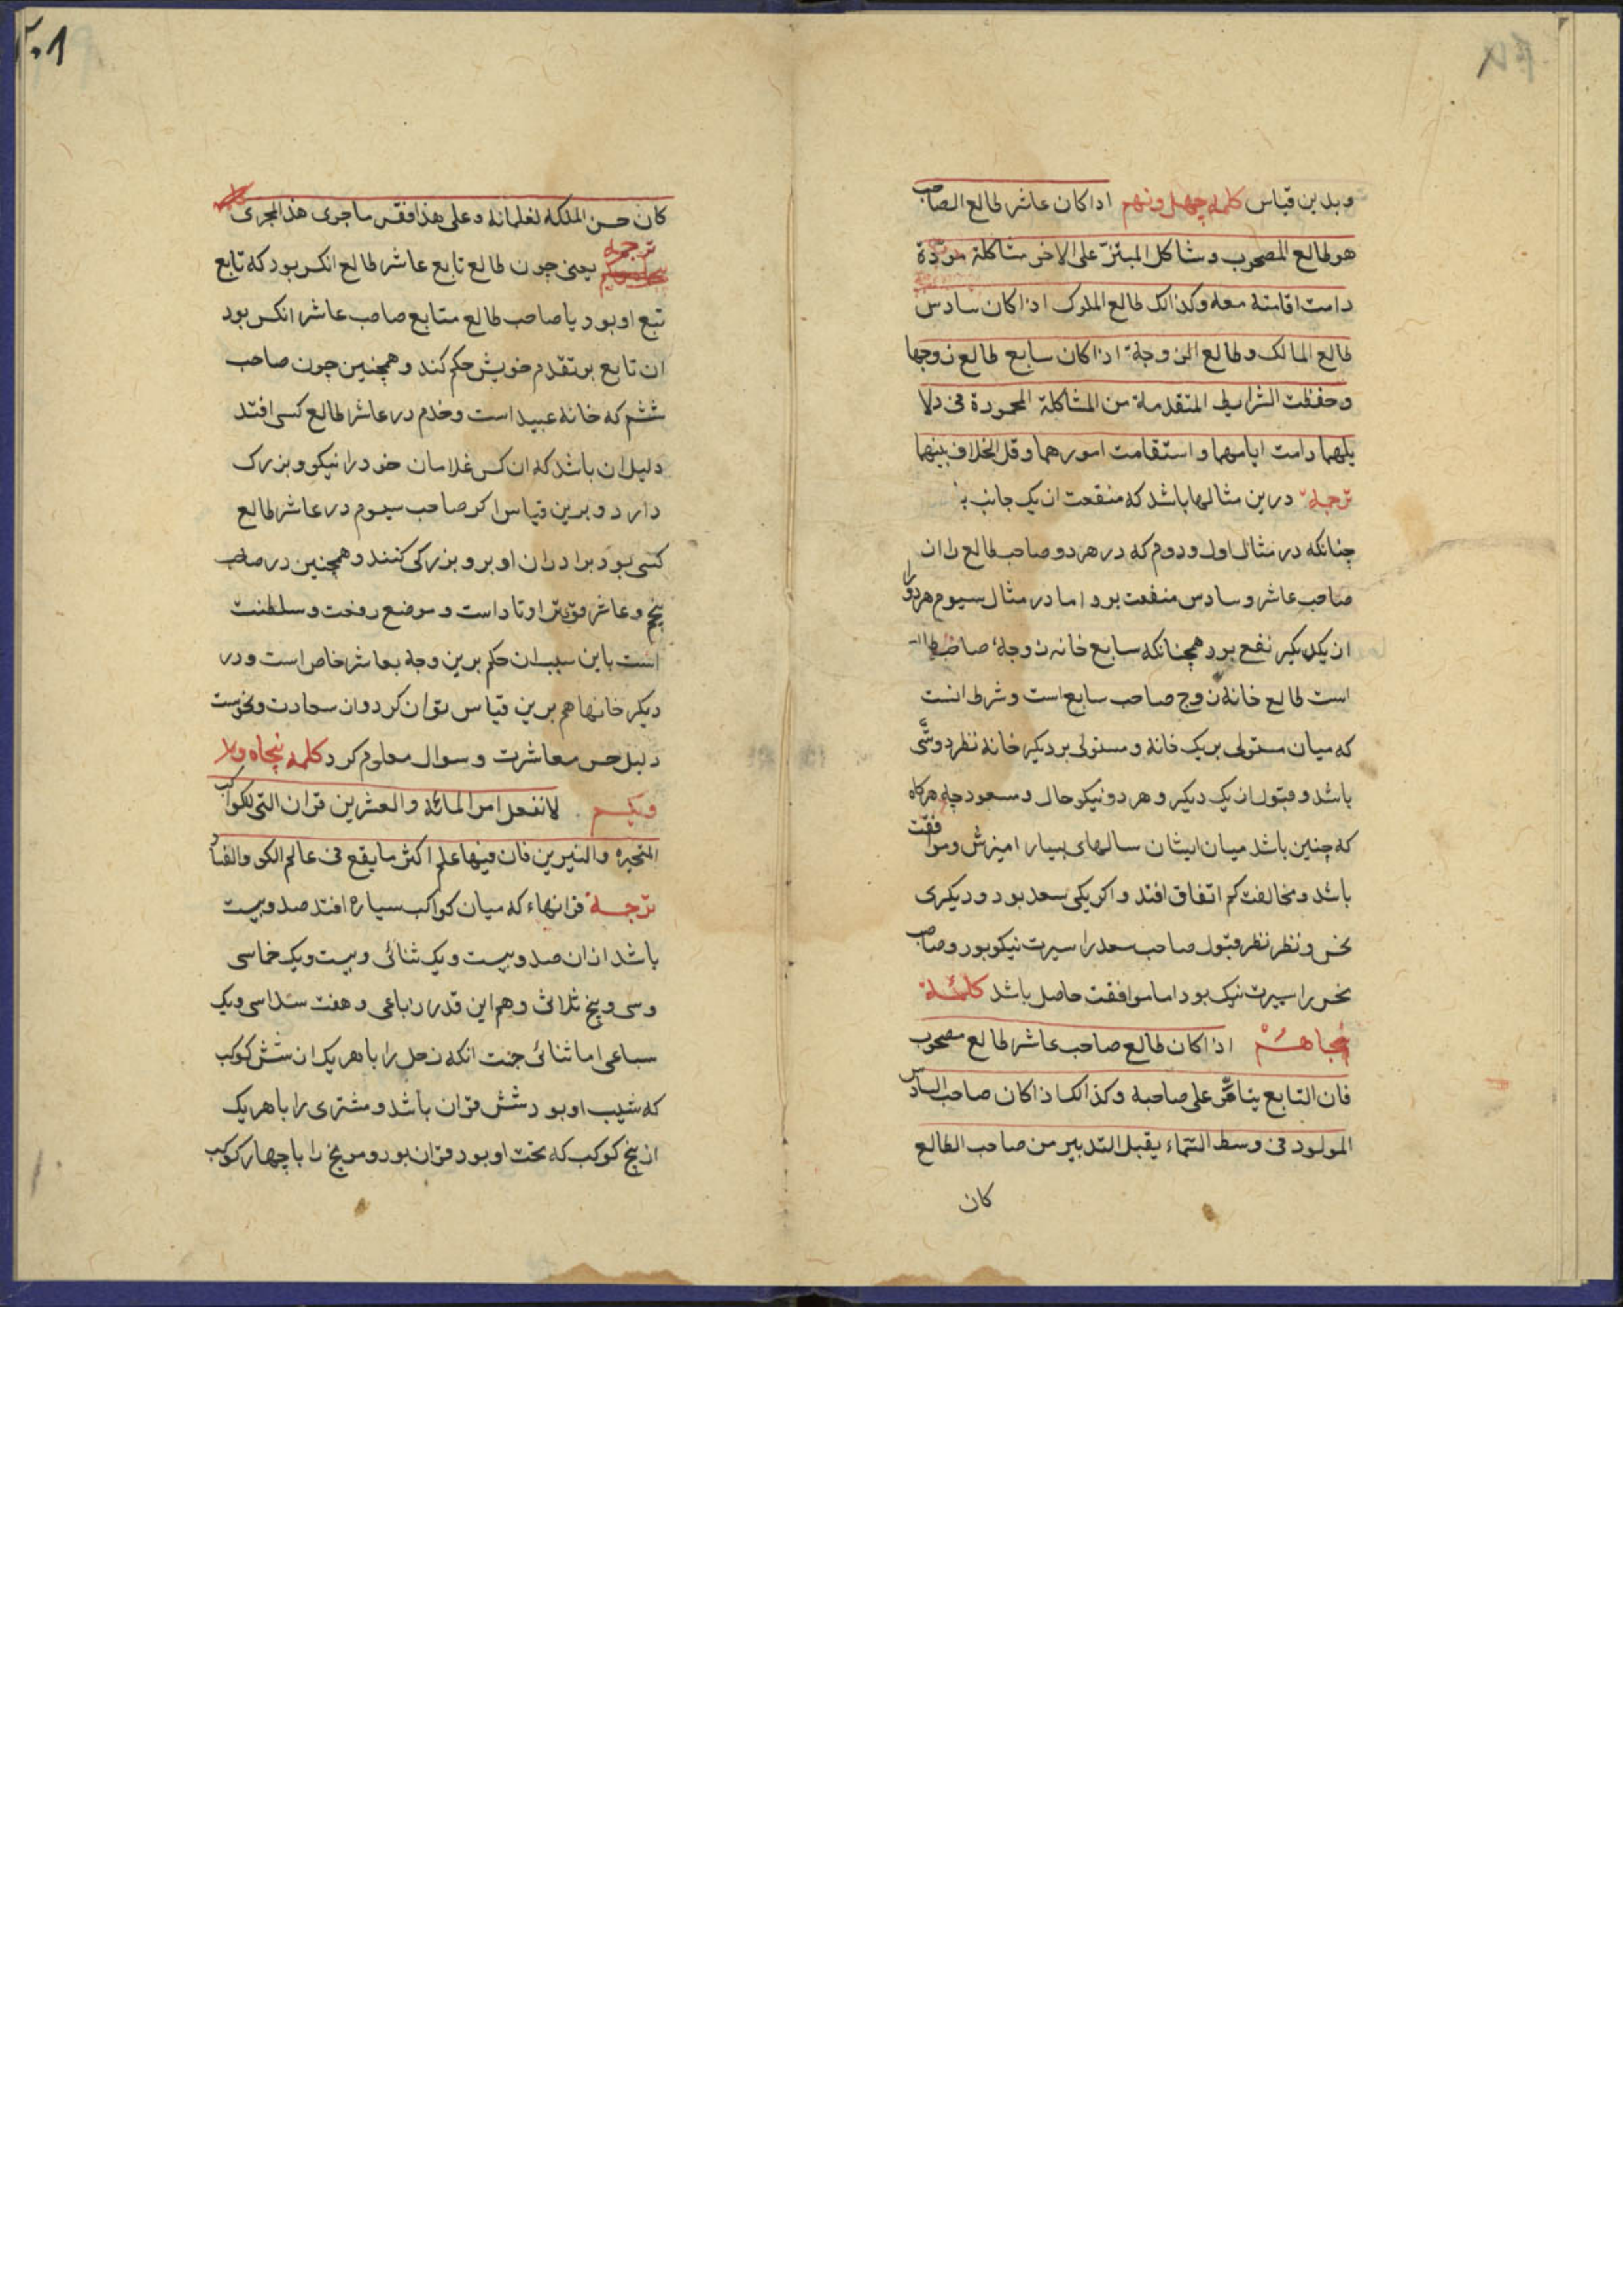 وبدین قیاس کلمه چهل ونهم اذا کان عاشر طالع الصاحب
هو طالع المصحوب وشاکل المبتز علی الاخر مشاکلة مودّة
دامت اقامته معه وکذالک طالع الملوک اذا کان سادس
طالع المالک وطالع الزوجة اذا کان سابع طالع زوجها
وحفظت الشرایط المتقدمة من المشاکلة المحمودة فی دلا
یلهما دامت ایامهما واستقامت امورهما وقل الخلاف بینهما
ترجمه درین مثالها باشد که منفعت از یک جانب
چنانکه در مثال اول ودوم که در هر دو صاحب طالع را از
صاحب عاشر وسادس منفعت بود اما در مثال سیوم هر دو را
از یکدیکر نفع بود همچنانکه سابع خانه زوجه صاحب طالع
است طالع خانه زوج صاحب سابع است وشرط انست
که میان مستولی بر یک خانه ومستولی بر دیکر خانه نظر دوستی
باشد وقبول از یک دیکر وهر دو نیکو حال ومسعود چه هرکاه
که چنین باشد میان ایشان سالهای بسیار امیزش وموافقت
باشد ومخالفت کم اتفاق افتد واکر یکی سعد بود ودیکری
نحس ونظر نظر قبول صاحب سعد را سیرت نیکو بود وصاحب
نحس را سیرت نیک بود اما موافقت حاصل باشد کلمه
پنجاهم اذا کان طالع صاحب عاشر طالع مصحوب
فان التابع یتامّر علی صاحبه وکذالک اذا کان صاحب السادس
المولود فی وسط السّماء یقبل التدبیر من صاحب الطالع
کان
۲۰۱
کان حسن الملکه لغلمانه وعلی هذا فقس ما جری هذا المجری
ترجمه یعنی چون طالع تابع عاشر طالع انکس بود که تابع
تبع او بود یا صاحب طالع متابع صاحب عاشر انکس بود
ان تابع بر تقدم خویش حکم کند وهمچنین چون صاحب
ششم که خانه عبید است وخدم در عاشر طالع کسی افتد
دلیل ان باشد که ان کس غلامان خود را نیکو وبزرک
دارد وبرین قیاس اکر صاحب سیوم در عاشر طالع
کسی بود برادران او برو بزرکی کنند وهمچنین در صاحب
پنجم وعاشر قوی‌تر اوتاد است وموضع رفعت وسلطنت
است باین سبب ان حکم برین وجه بعاشر خاص است ودر
دیکر خانها هم برین قیاس توان کرد وان سعادت ونحوست
دلیل حس معاشرت وسوال معلوم کرد کلمه پنجاه
ویکم لا تغفل امر المائه والعشرین قران التی للکواکب
المتحیره والنیرین فان فیها علم اکثر ما یقع فی عالم الکون والفساد
ترجمه قرانهاء که میان کواکب سیاره افتد صد وبیست
باشد از ان صد وبیست ویک ثنائی وبیست ویک خماسی
وسی وپنج ثلاثی وهم این قدر رباعی وهفت سداسی ویک
سباعی اما ثنائی جنت انکه زحل را با هر یک از شش کوکب
که شیب او بود شش قران باشد ومشتری را با هر یک
از پنج کوکب که تحت او بود قران بود ومریخ را با چهار کوکب